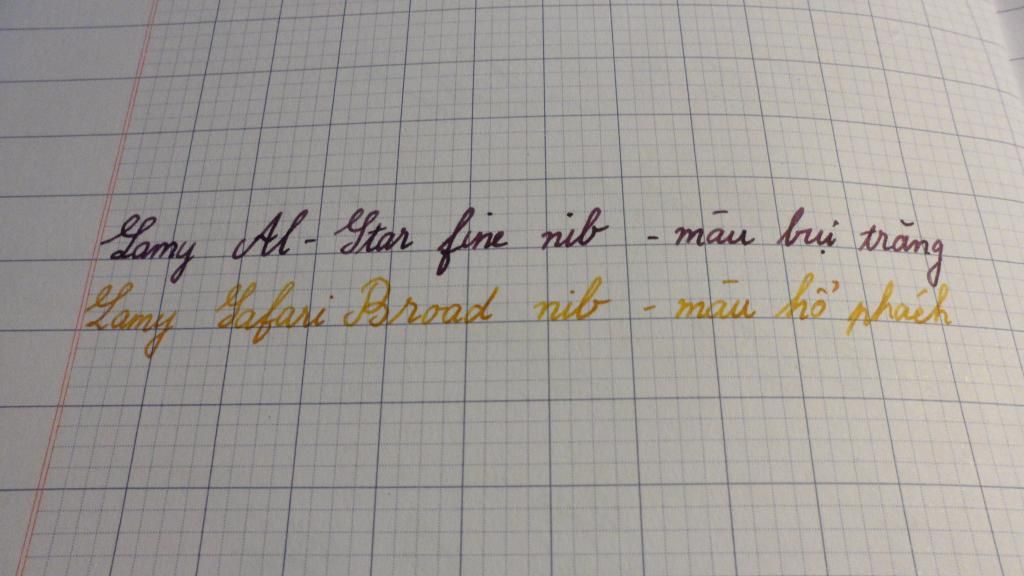 Lamy Al-Star fine nib - màu bụi trăng
Lamy Safari Broad nib - màu hổ phách